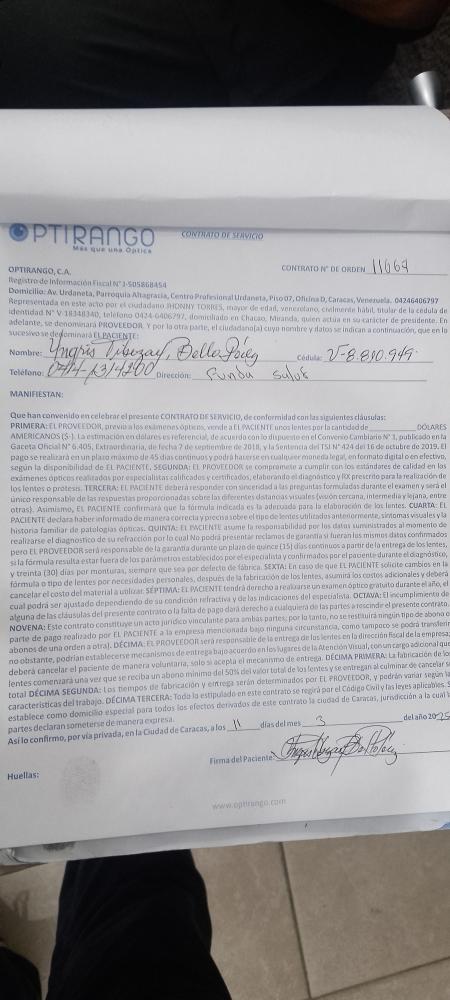 OPTIRANGO
Más que una Óptica
CONTRATO DE SERVICIO
OPTIRANGO, C.A.
CONTRATO N° DE ORDEN 11669
Registro de Información Fiscal N° J-505868454
Domicilio: Av. Urdaneta, Parroquia Altagracia, Centro Profesional Urdaneta, Piso 07, Oficina D, Caracas, Venezuela. 04246406797
Representada en este acto por el ciudadano JHONNY TORRES, mayor de edad, venezolano, civilmente hábil, titular de la cédula de
identidad N° V-18348340, teléfono 0424-6406797, domiciliado en Chacao, Miranda, quien actúa en su carácter de presidente. En
adelante, se denominará PROVEEDOR. Y por la otra parte, el ciudadano(a) cuyo nombre y datos se indican a continuación, que en lo
sucesivo se denominará EL PACIENTE:
Nombre: Yngris Bello Páez Cédula: V-8.810.949
Teléfono: Dirección: Funda salud
MANIFIESTAN:
Que han convenido en celebrar el presente CONTRATO DE SERVICIO, de conformidad con las siguientes cláusulas:
PRIMERA: EL PROVEEDOR, previo a los exámenes ópticos, vende a EL PACIENTE unos lentes por la cantidad de DÓLARES
AMERICANOS ($-). La estimación en dólares es referencial, de acuerdo con lo dispuesto en el Convenio Cambiario N° 1, publicado en la
Gaceta Oficial N° 6.405, Extraordinaria, de fecha 7 de septiembre de 2018, y la Sentencia del TSJ N° 424 del 16 de octubre de 2019. El
pago se realizará en un plazo máximo de 45 días continuos y podrá hacerse en cualquier moneda legal, en formato digital o en efectivo,
según la disponibilidad de EL PACIENTE. SEGUNDA: EL PROVEEDOR se compromete a cumplir con los estándares de calidad en los
exámenes ópticos realizados por especialistas calificados y certificados, elaborando el diagnóstico y RX prescrito para la realización de
los lentes o prótesis. TERCERA: EL PACIENTE deberá responder con sinceridad a las preguntas formuladas durante el examen y será el
único responsable de las respuestas proporcionadas sobre las diferentes distancias visuales (visión cercana, intermedia y lejana, entre
otras). Asimismo, EL PACIENTE confirmará que la fórmula indicada es la adecuada para la elaboración de los lentes. CUARTA: EL
PACIENTE declara haber informado de manera correcta y precisa sobre el tipo de lentes utilizados anteriormente, síntomas visuales y la
historia familiar de patologías ópticas. QUINTA: EL PACIENTE asume la responsabilidad por los datos suministrados al momento de
realizarse el diagnostico de su refracción por lo cual No podrá presentar reclamos de garantía si fueran los mismos datos confirmados
pero EL PROVEEDOR será responsable de la garantía durante un plazo de quince (15) días continuos a partir de la entrega de los lentes,
si la fórmula resulta estar fuera de los parámetros establecidos por el especialista y confirmados por el paciente durante el diagnóstico,
y treinta (30) días por monturas, siempre que sea por defecto de fábrica. SEXTA: En caso de que EL PACIENTE solicite cambios en la
fórmula o tipo de lentes por necesidades personales, después de la fabricación de los lentes, asumirá los costos adicionales y deberá
cancelar el costo del material a utilizar. SÉPTIMA: EL PACIENTE tendrá derecho a realizarse un examen óptico gratuito durante el año, el
cual podrá ser ajustado dependiendo de su condición refractiva y de las indicaciones del especialista. OCTAVA: El incumplimiento de
alguna de las cláusulas del presente contrato o la falta de pago dará derecho a cualquiera de las partes a rescindir el presente contrato.
NOVENA: Este contrato constituye un acto jurídico vinculante para ambas partes; por lo tanto, no se restituirá ningún tipo de abono o
parte de pago realizado por EL PACIENTE a la empresa mencionada bajo ninguna circunstancia, como tampoco se podrá transferir
abonos de una orden a otra). DÉCIMA: EL PROVEEDOR será responsable de la entrega de los lentes en la dirección fiscal de la empresa,
no obstante, podrían establecerse mecanismos de entrega bajo acuerdo en los lugares de Atención Visual, con un cargo adicional que
deberá cancelar el paciente de manera voluntaria, solo si acepta el mecanismo de entrega. DÉCIMA PRIMERA: La fabricación de lo
lentes comenzará una vez que se reciba un abono mínimo del 50% del valor total de los lentes y se entregan al culminar de cancelar s
total DÉCIMA SEGUNDA: Los tiempos de fabricación y entrega serán determinados por EL PROVEEDOR, y podrán variar según la
características del trabajo. DÉCIMA TERCERA: Todo lo estipulado en este contrato se regirá por el Código Civil y las leyes aplicables. S
establece como domicilio especial para todos los efectos derivados de este contrato la ciudad de Caracas, jurisdicción a la cual l
partes declaran someterse de manera expresa.
Así lo confirmo, por vía privada, en la Ciudad de Caracas, a los 11 días del mes 3 del año 2025
Firma del Paciente:
Huellas:
www.optirango.com